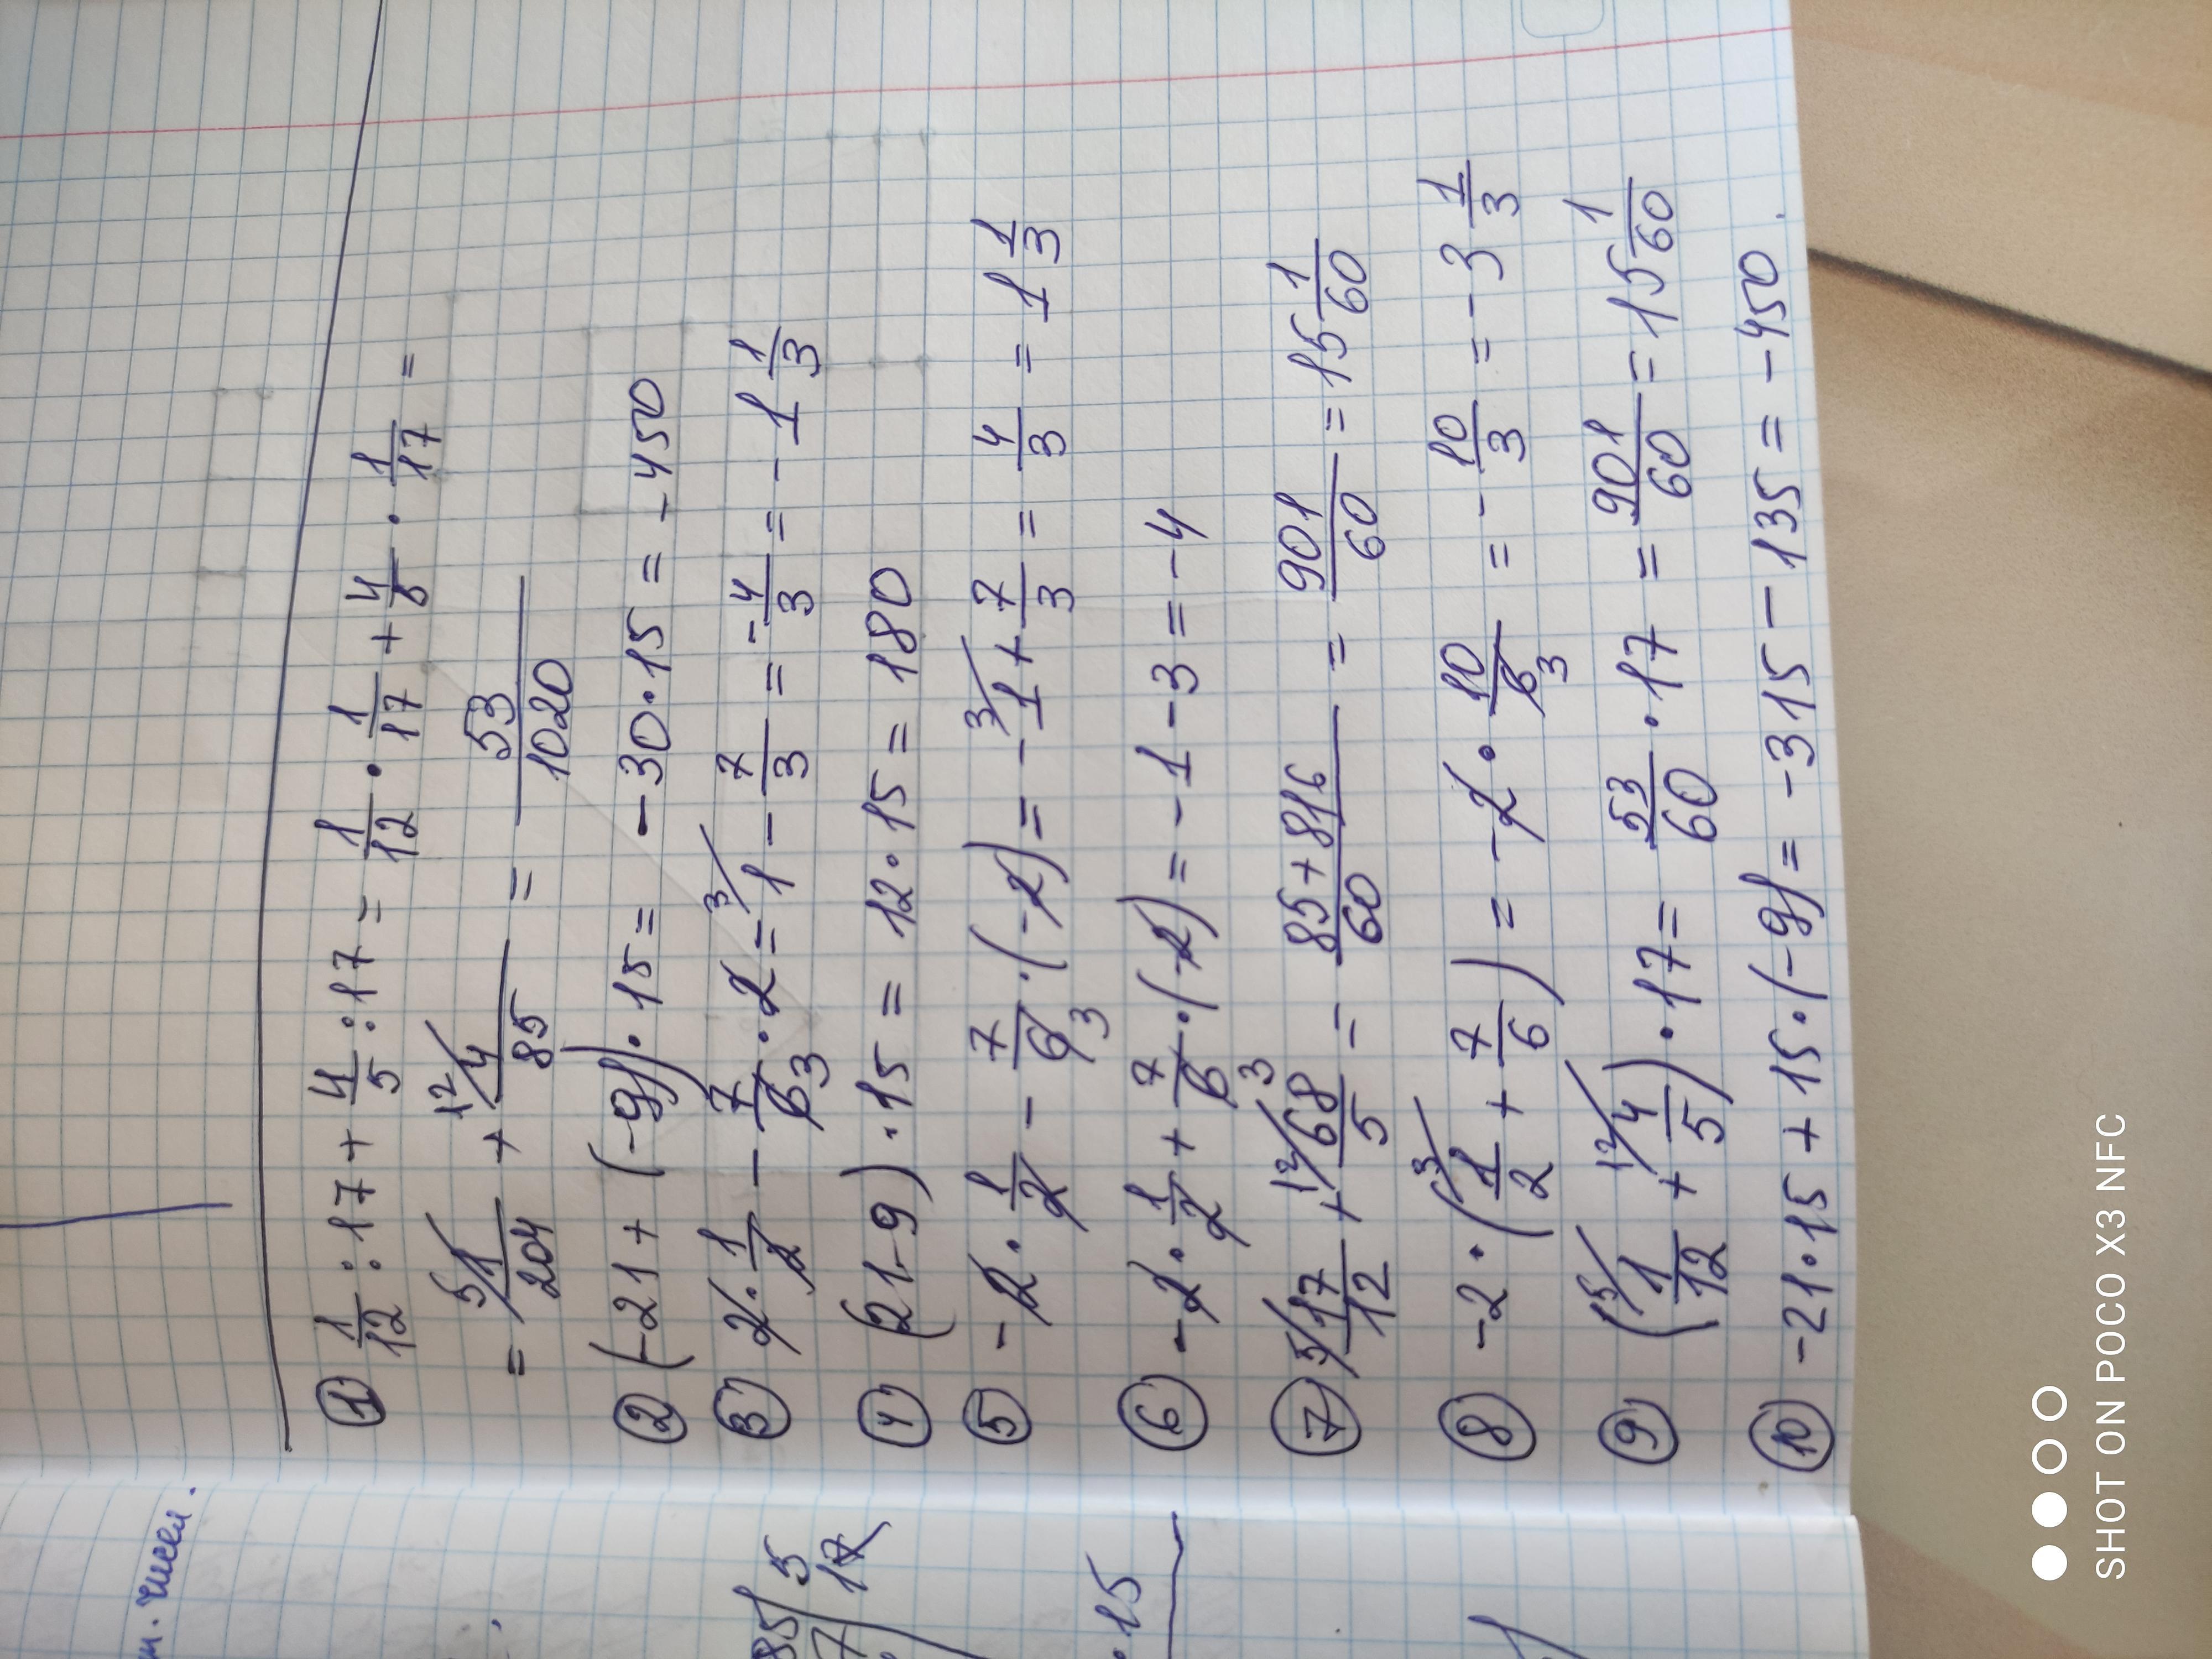 ① 1/12 : 17 + 4/5 : 17 = 1/12 · 1/17 + 4/5 · 1/17 =
= 5/ 1/204 + 12/ 4/85 = 53/1020
② (-21 + (-9)) · 15 = -30 · 15 = -450
③ 2 · 1/2 - 7/6 3 · 2 = 3/ 1 - 7/3 = -4/3 = -1 1/3
④ (21-9) · 15 = 12 · 15 = 180
⑤ -2 · 1/2 - 7/6 3 · (-2) = - 3/ 1 + 7/3 = 4/3 = 1 1/3
⑥ -2 · 1/2 + 7/6 3 · (-2) = -1 - 3 = -4
⑦ 5/ 17/12 + 12/ 68/5 = 85+816/60 = 901/60 = 15 1/60
⑧ -2 · (3/ 1/2 + 7/6) = -2 · 10/6 3 = -10/3 = -3 1/3
⑨ (5/ 1/12 + 12/ 4/5) · 17 = 53/60 · 17 = 901/60 = 15 1/60
⑩ -21 · 15 + 15 · (-9) = -315 - 135 = -450.
чисел.
85/ 5
7 17
· 15
SHOT ON POCO X3 NFC